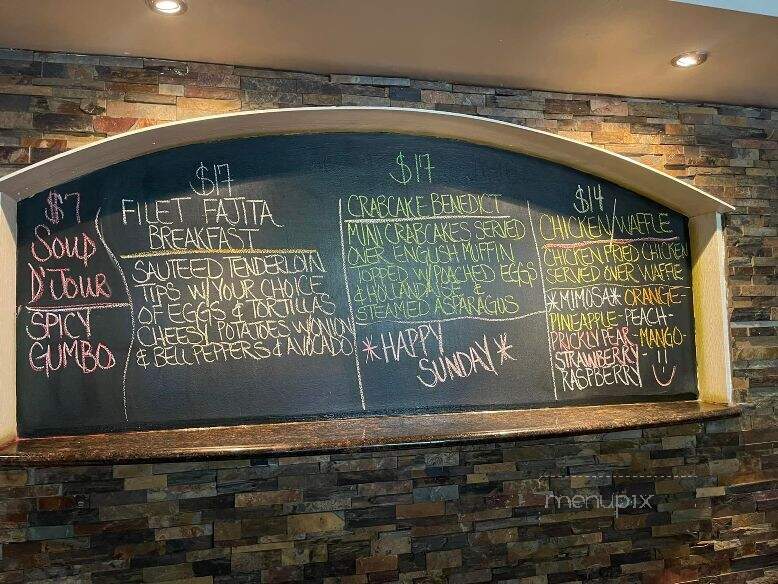 $7
SOUP
D'JOUR
SPICY
GUMBO
$17
FILET FAJITA
BREAKFAST
SAUTEED TENDERLOIN
TIPS W/ YOUR CHOICE
OF EGGS & TORTILLAS
CHEESY POTATOES W/ ONION
& BELL PEPPERS & AVOCADO
$17
CRABCAKE BENEDICT
MINI CRABCAKES SERVED
OVER ENGLISH MUFFIN
TOPPED W/ POACHED EGGS
& HOLLANDAISE &
STEAMED ASPARAGUS
*HAPPY
SUNDAY*
$14
CHICKEN/WAFFLE
CHICKEN FRIED CHICKEN
SERVED OVER WAFFLE
*MIMOSA* ORANGE-
PINEAPPLE-PEACH-
PRICKLY PEAR-MANGO-
STRAWBERRY-
RASPBERRY
menupix